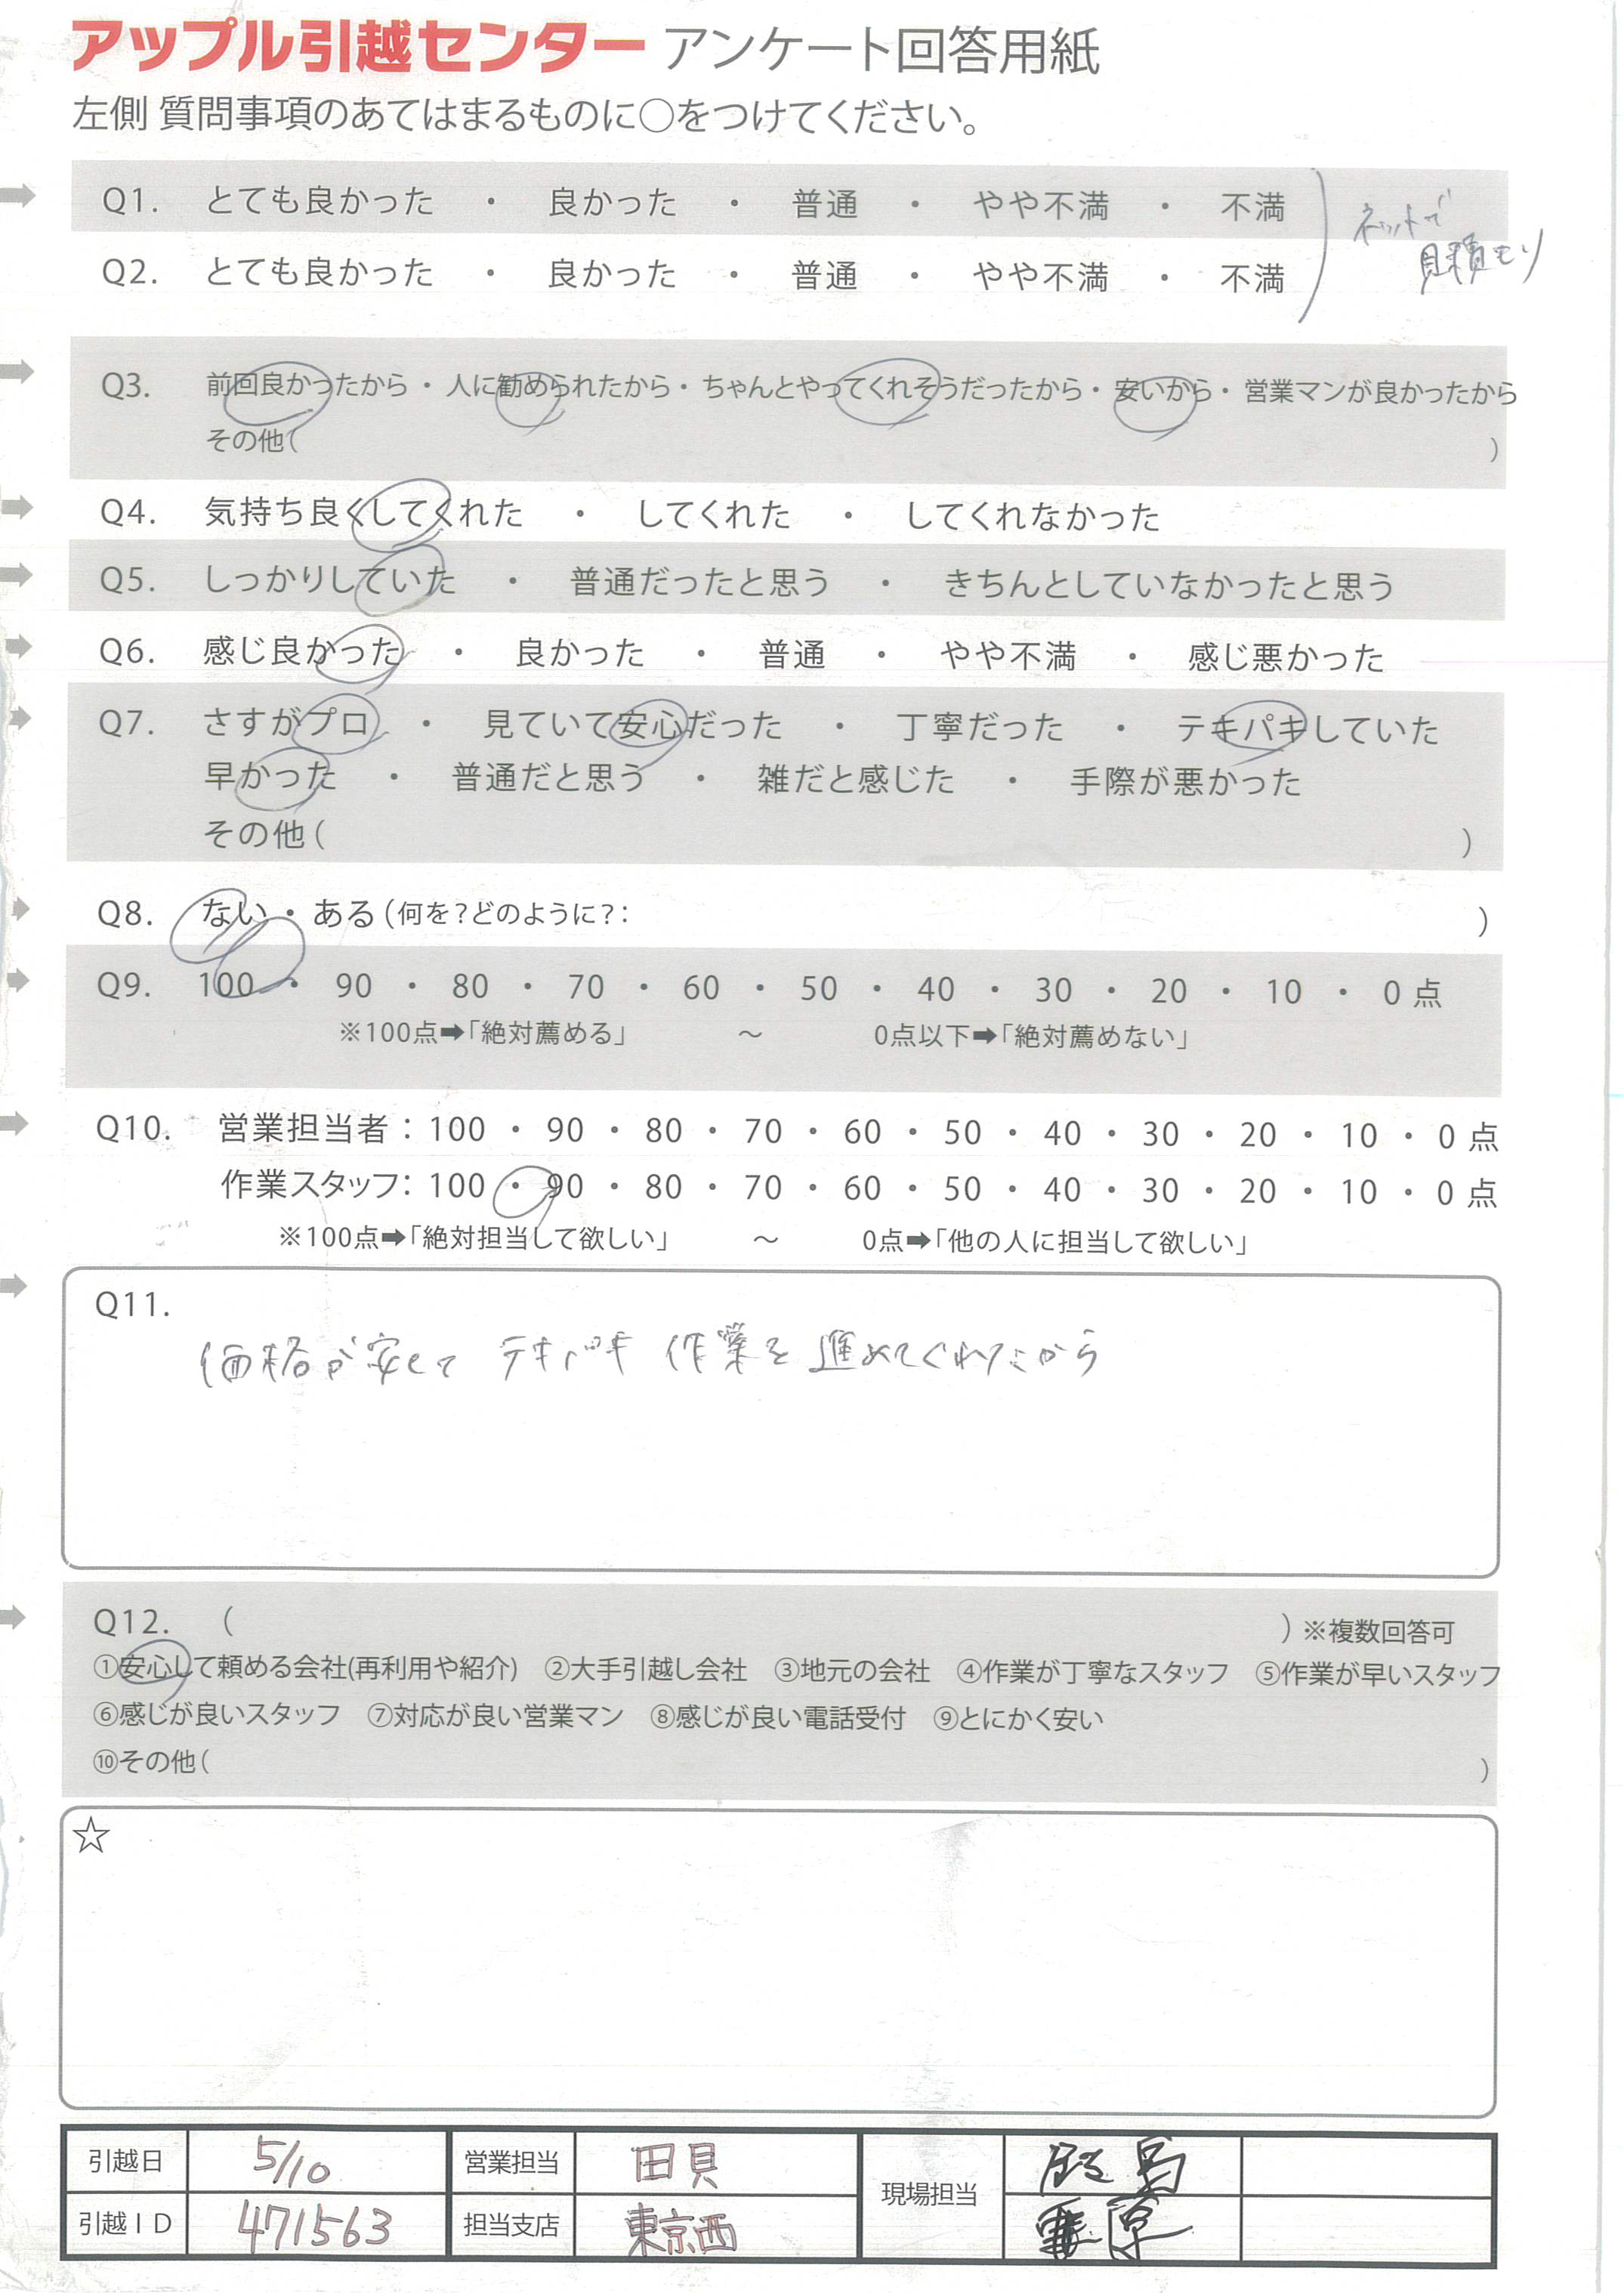 アップル引越センター アンケート回答用紙
左側 質問事項のあてはまるものに○をつけてください。
Q1. とても良かった ・ 良かった ・ 普通 ・ やや不満 ・ 不満
ネットで
見積もり
Q2. とても良かった ・ 良かった ・ 普通 ・ やや不満 ・ 不満
Q3. 前回良かったから・人に勧められたから・ちゃんとやってくれそうだったから・安いから・営業マンが良かったから
その他( )
Q4. 気持ち良くしてくれた ・ してくれた ・ してくれなかった
Q5. しっかりしていた ・ 普通だったと思う ・ きちんとしていなかったと思う
Q6. 感じ良かった ・ 良かった ・ 普通 ・ やや不満 ・ 感じ悪かった
Q7. さすがプロ ・ 見ていて安心だった ・ 丁寧だった ・ テキパキしていた
早かった ・ 普通だと思う ・ 雑だと感じた ・ 手際が悪かった
その他( )
Q8. ない・ある(何を?どのように?: )
Q9. 100 ・ 90 ・ 80 ・ 70 ・ 60 ・ 50 ・ 40 ・ 30 ・ 20 ・ 10 ・ 0 点
※100点➡「絶対薦める」 ～ 0点以下➡「絶対薦めない」
Q10. 営業担当者:100 ・ 90 ・ 80 ・ 70 ・ 60 ・ 50 ・ 40 ・ 30 ・ 20 ・ 10 ・ 0 点
作業スタッフ:100 ・ 90 ・ 80 ・ 70 ・ 60 ・ 50 ・ 40 ・ 30 ・ 20 ・ 10 ・ 0 点
※100点➡「絶対担当して欲しい」 ～ 0点➡「他の人に担当して欲しい」
Q11.
価格が安くて テキパキ 作業を進めてくれたから
Q12. ( )※複数回答可
①安心して頼める会社(再利用や紹介) ②大手引越し会社 ③地元の会社 ④作業が丁寧なスタッフ ⑤作業が早いスタッフ
⑥感じが良いスタッフ ⑦対応が良い営業マン ⑧感じが良い電話受付 ⑨とにかく安い
⑩その他( )
☆
引越日 5/10 営業担当 田貝 現場担当
引越ＩＤ 471563 担当支店 東京西